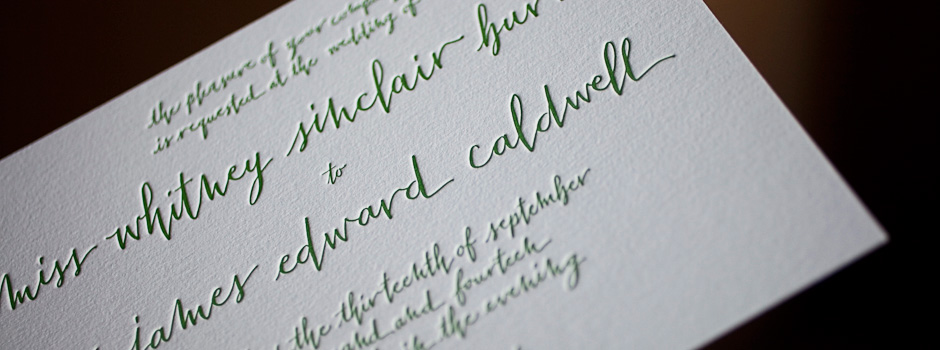 the pleasure of your company
is requested at the wedding of
miss whitney sinclair
to
james edward caldwell
the thirteenth of september
and fourteen
the evening